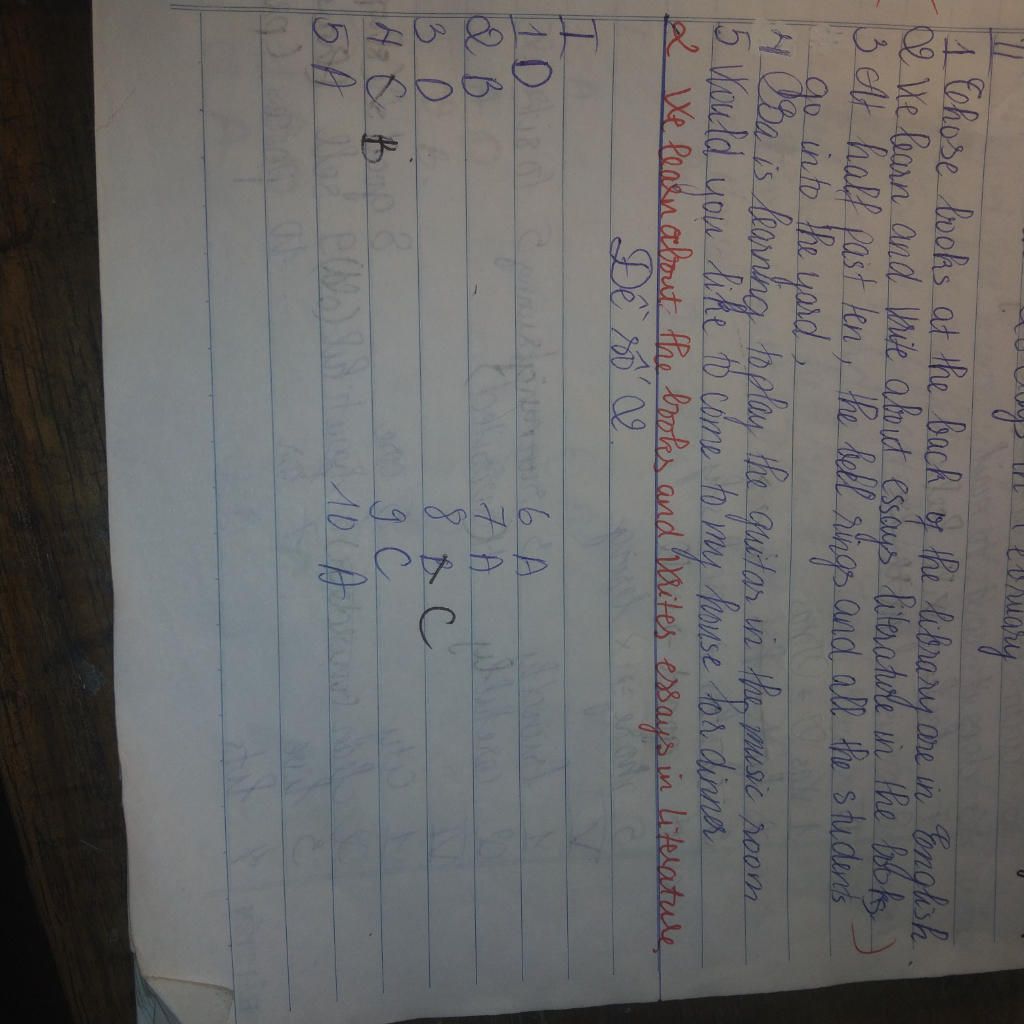 1 Those books at the back of the library are in English.
2 We learn and write about essays literature in the books)
3 At half past ten, the bell rings and all the students
go into the yard,
4 Ba is learning to play the guitar in the music room
5 Would you like to come to my house for dinner
2 We learn about the books and writes essays in literature.
Đề số 2
I
1 D 6 A
2 B 7 A
3 D 8 C
4 b 9 C
5 A 10 A